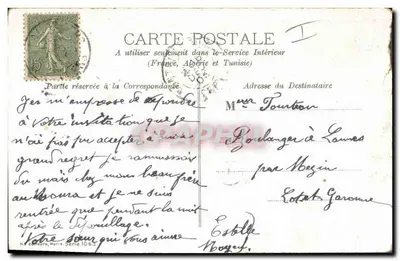 CARTE POSTALE
A utiliser seulement dans le Service Intérieur
(France, Algérie et Tunisie)
Partie réservée à la Correspondance
Adresse du Destinataire
Je m'empresse de répondre
à votre invitation que je
n'ai pas pu accepter à mon
grand regret je ramassais
du maïs chez mon beau frère
au et je ne suis
rentrée que pendant la nuit
après le dépouillage.
Votre sœur qui vous aime
Estelle
Mme Tourton
Boulanger à Lannes
par Mézin
Lot et Garonne